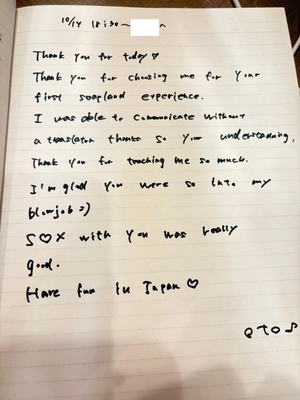 10/14 18:30~
Thank you for today♡
Thank you for chosing me for your
first soapland experience.
I was able to communicate without
a translator thanks so your understanding,
Thank you for teaching me so much.
I'm glad you were so into my
blowjob :)
S♡X with you was really
good.
Have fun in Japan♡